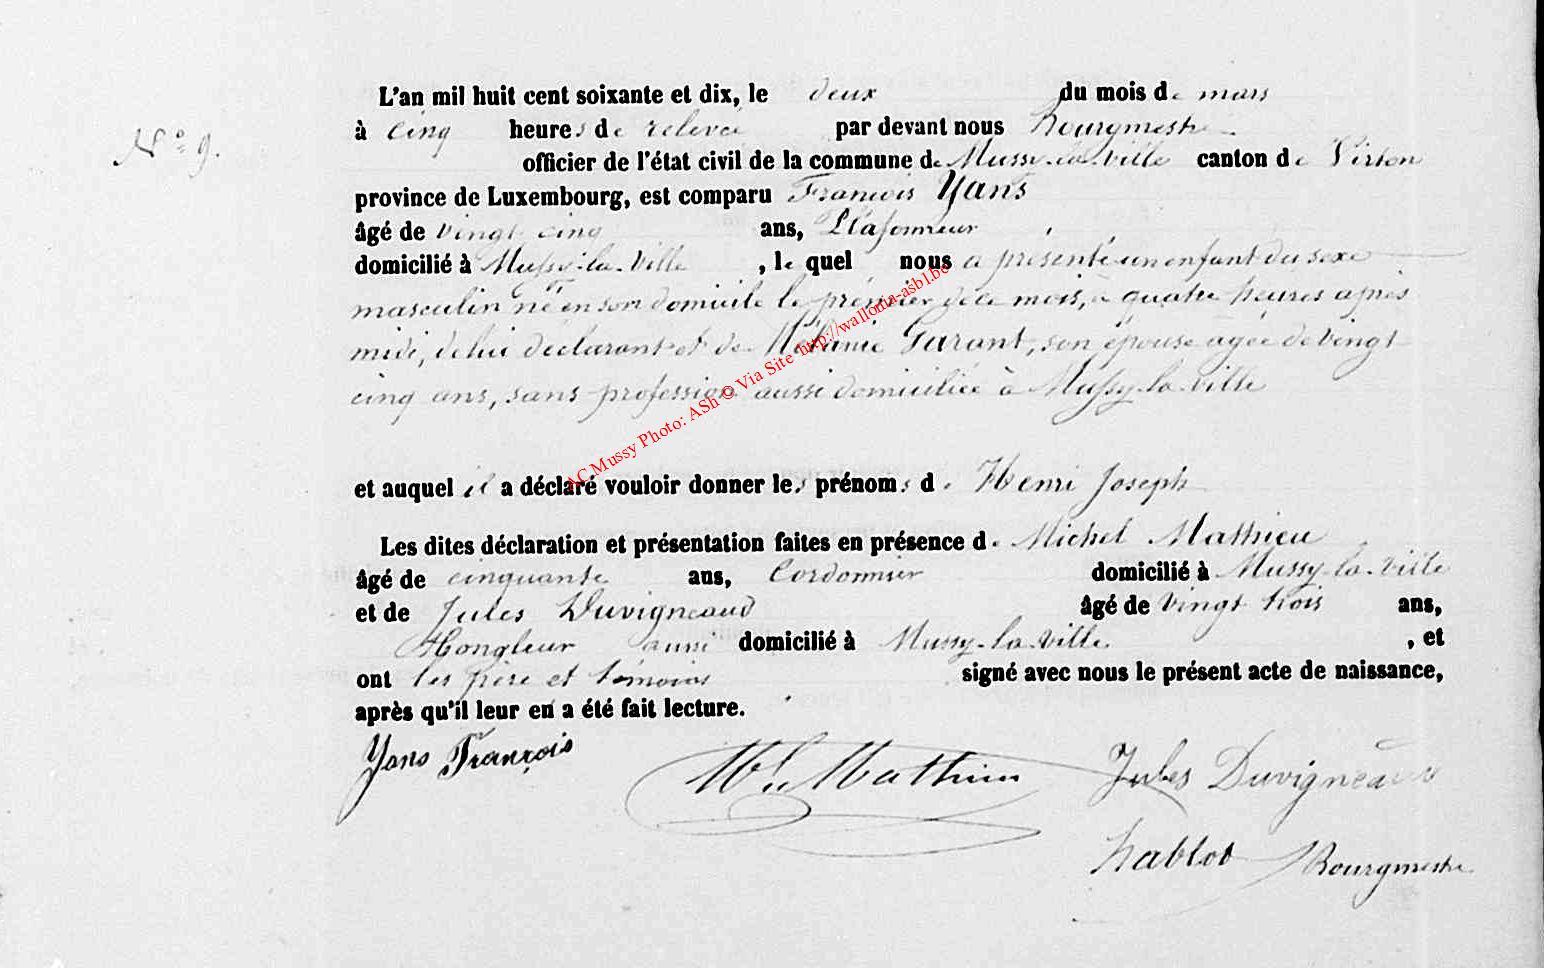 N° 9.
L'an mil huit cent soixante et dix, le deux du mois de mars
à cinq heures de relevée par devant nous Bourgmestre
officier de l'état civil de la commune de Mussy-la-Ville canton de Virton
province de Luxembourg, est comparu François Yans
âgé de vingt cinq ans, Plafonneur
domicilié à Mussy-la-Ville, le quel nous a présenté un enfant du sexe
masculin né en son domicile le prémier de ce mois, à quatre heures après
midi, de lui déclarant et de Mélanie Garant, son épouse agée de vingt
cinq ans, sans profession aussi domiciliée à Mussy-la-Ville
et auquel il a déclaré vouloir donner les prénoms de Henri Joseph
Les dites déclaration et présentation faites en présence de Michel Mathieu
âgé de cinquante ans, Cordonnier domicilié à Mussy-la-Ville
et de Jules Duvigneaud âgé de vingt trois ans,
Hongleur aussi domicilié à Mussy-la-Ville, et
ont les père et témoins signé avec nous le présent acte de naissance,
après qu'il leur en a été fait lecture.
Yans François Ml Mathieu Jules Duvigneaud
hablot Bourgmestre
AC.Mussy Photo: ASh © Via Site http://wallonia-asbl.be